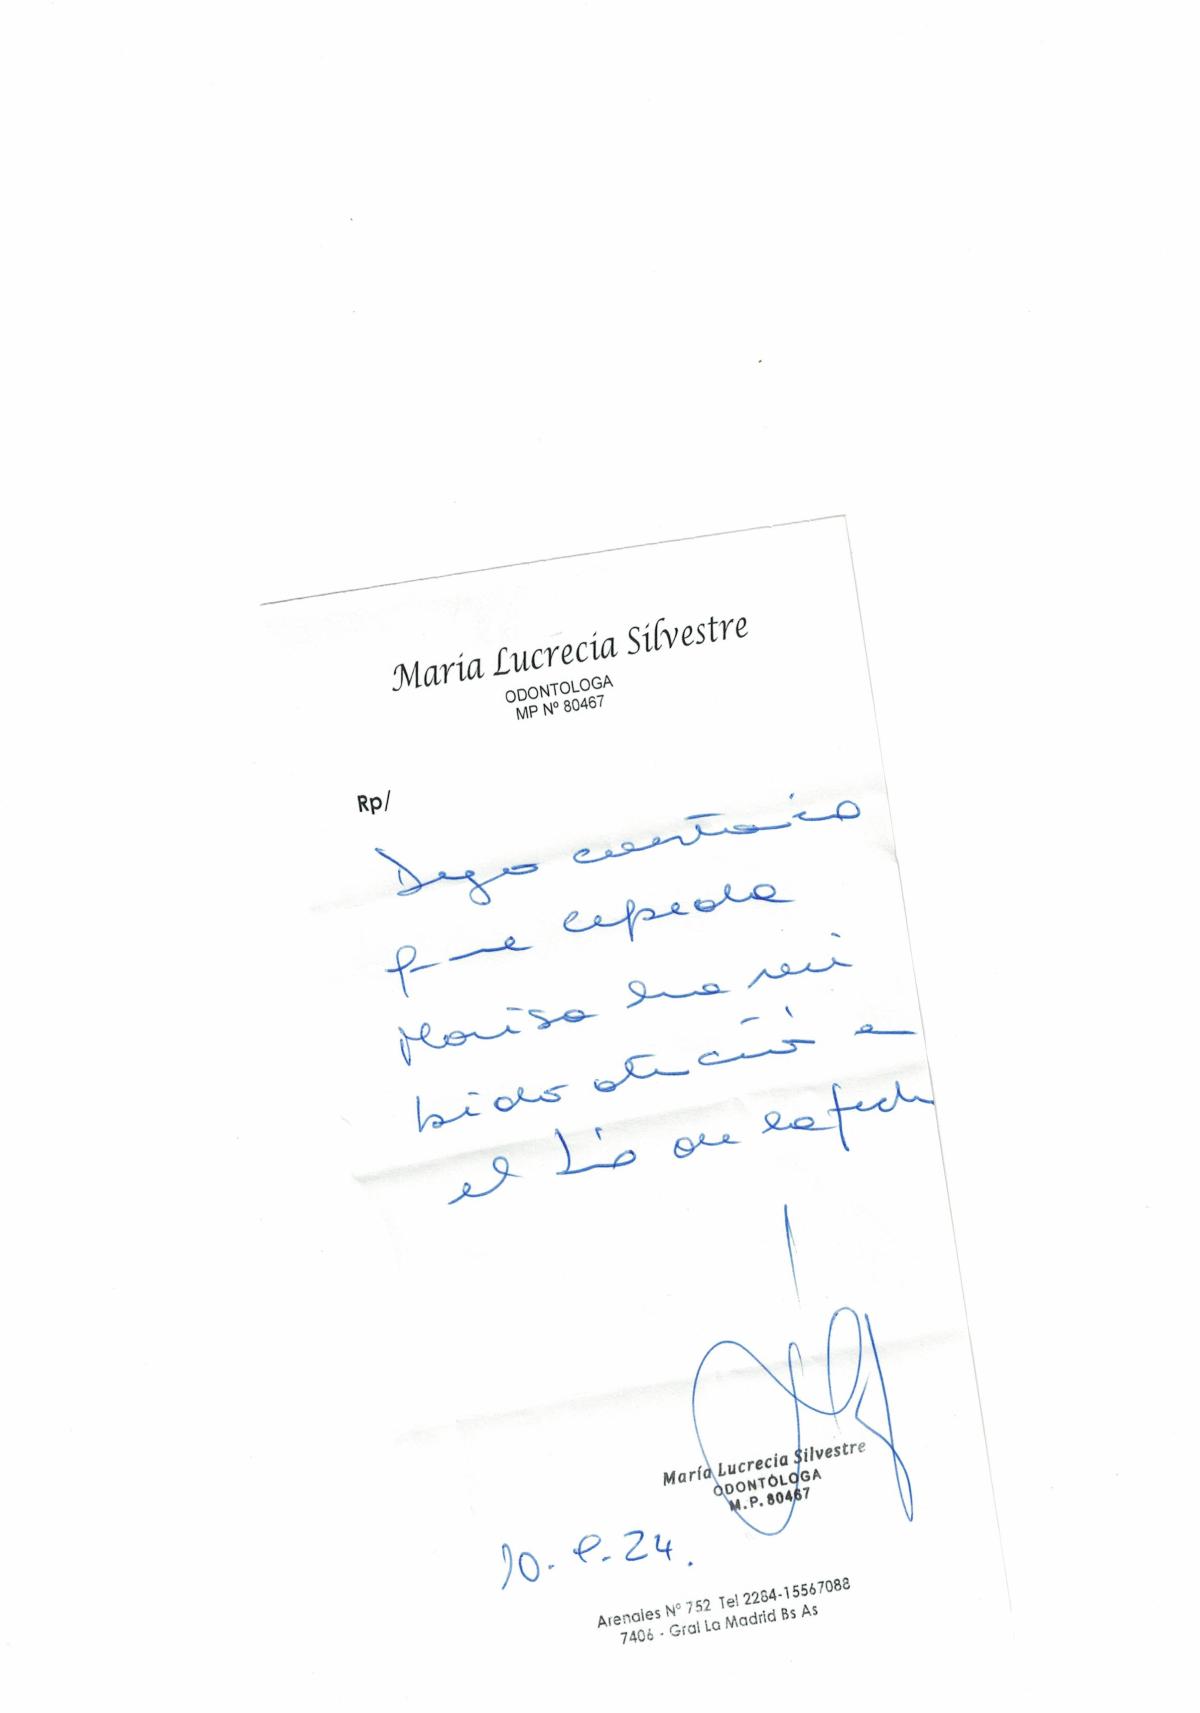 Maria Lucrecia Silvestre
ODONTOLOGA
MP Nº 80467
Rp/
Dejo constancia
que Cepeda
Marisa ha reci
bido atención en
el día de la fecha
María Lucrecia Silvestre
ODONTÓLOGA
M.P. 80467
24.
Arenales Nº 752 Tel 2284-15567088
7406 - Gral La Madrid Bs As